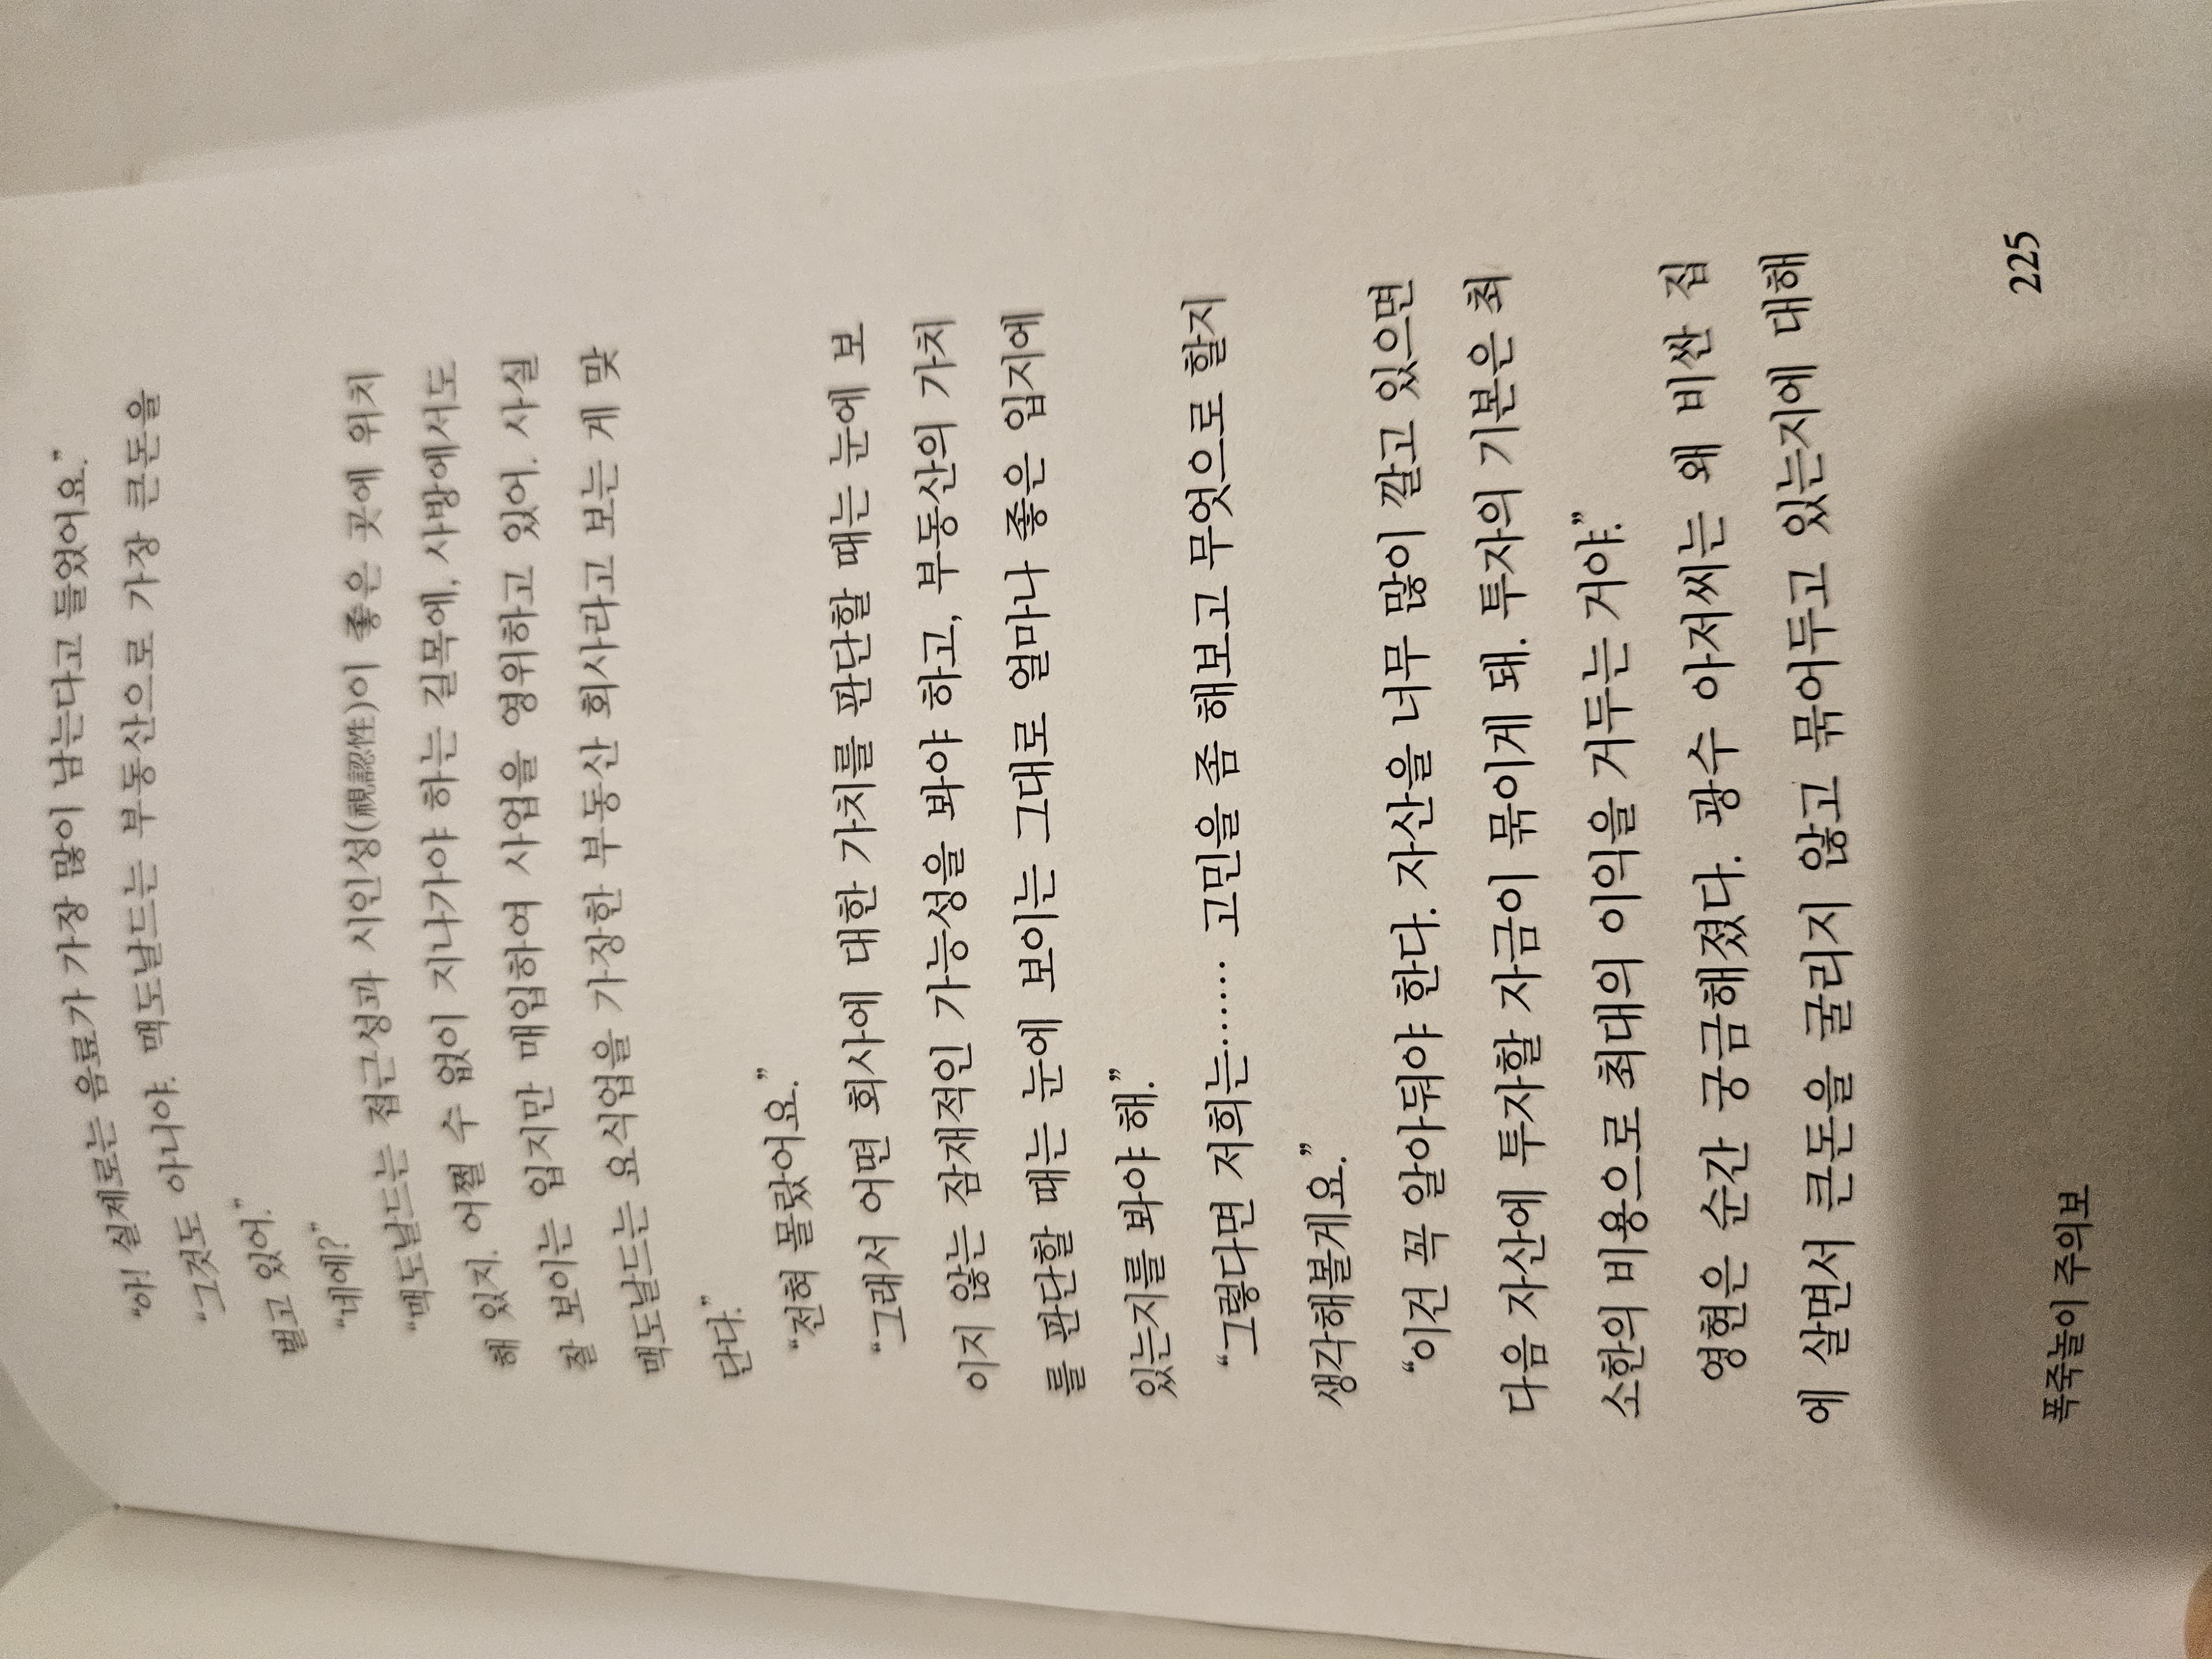 “아! 실제로는 음료가 가장 많이 남는다고 들었어요.”
“그것도 아니야. 맥도날드는 부동산으로 가장 큰돈을
벌고 있어.”
“네에?”
“맥도날드는 접근성과 시인성(視認性)이 좋은 곳에 위치
해 있지. 어쩔 수 없이 지나가야 하는 길목에, 사방에서도
잘 보이는 입지만 매입하여 사업을 영위하고 있어. 사실
맥도날드는 요식업을 가장한 부동산 회사라고 보는 게 맞
단다.”
“전혀 몰랐어요.”
“그래서 어떤 회사에 대한 가치를 판단할 때는 눈에 보
이지 않는 잠재적인 가능성을 봐야 하고, 부동산의 가치
를 판단할 때는 눈에 보이는 그대로 얼마나 좋은 입지에
있는지를 봐야 해.”
“그렇다면 저희는…… 고민을 좀 해보고 무엇으로 할지
생각해볼게요.”
“이건 꼭 알아둬야 한다. 자산을 너무 많이 깔고 있으면
다음 자산에 투자할 자금이 묶이게 돼. 투자의 기본은 최
소한의 비용으로 최대의 이익을 거두는 거야.”
영현은 순간 궁금해졌다. 광수 아저씨는 왜 비싼 집
에 살면서 큰돈을 굴리지 않고 묶어두고 있는지에 대해
폭죽놀이 주의보
225